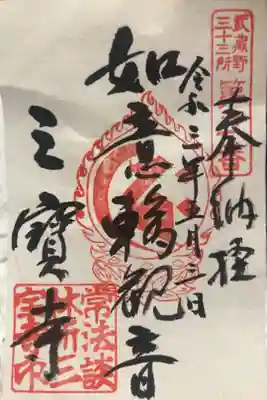 武蔵野
三十三所
第三番
奉納経
令和三年 月三日
如意輪観音
三寶寺
常法談
林所三
宝寺印